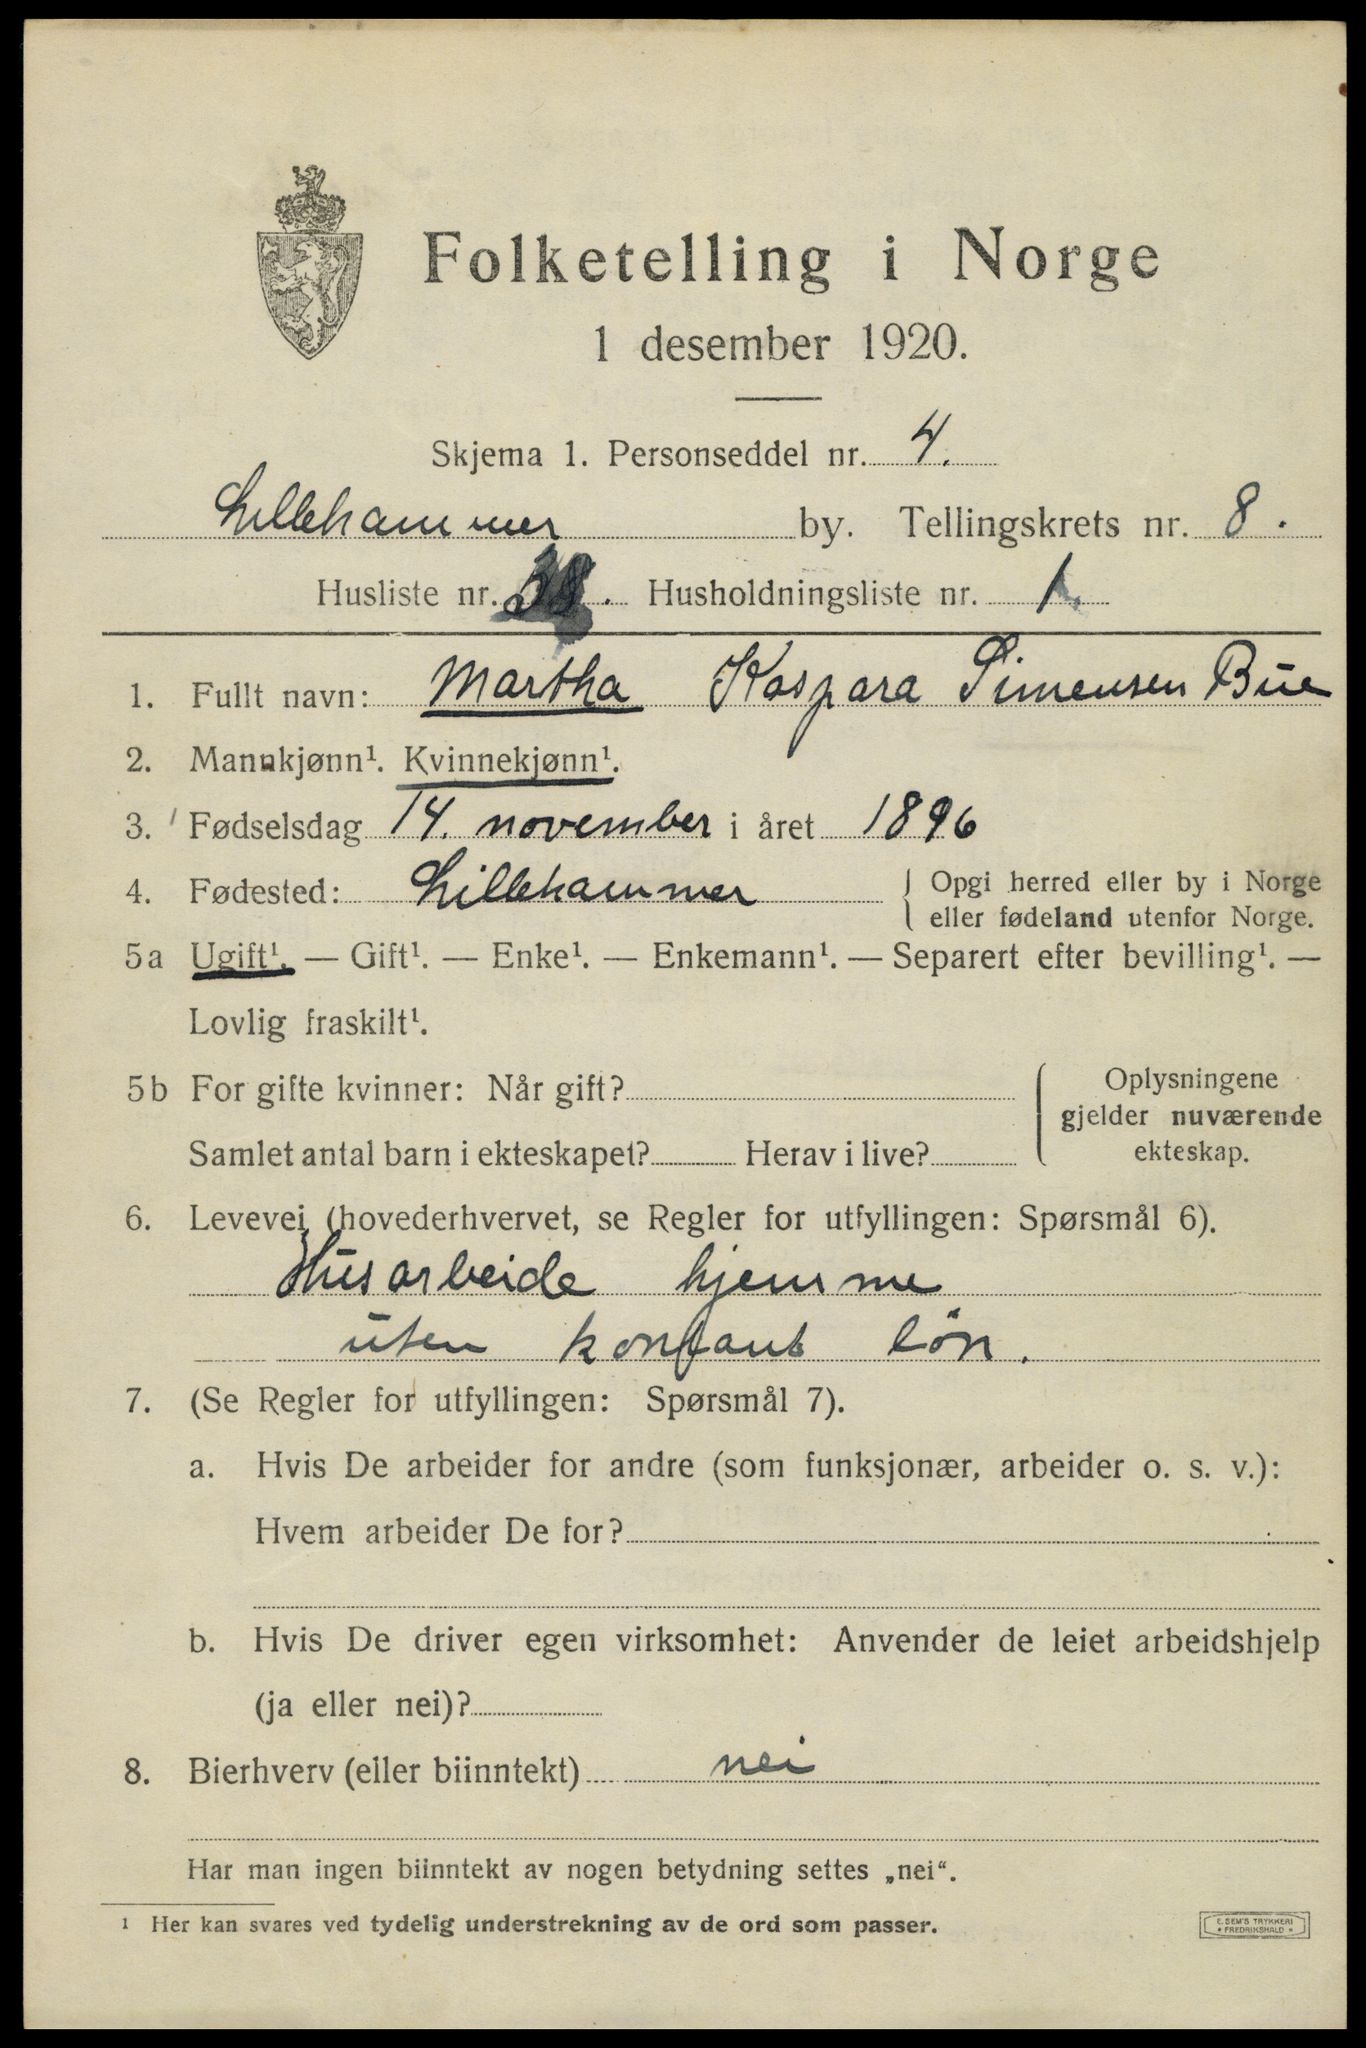 Folketelling i Norge
1 desember 1920.
Skjema 1. Personseddel nr. 4.
Lillehammer by. Tellingskrets nr. 8.
Husliste nr. 38. Husholdningsliste nr. 1.
1. Fullt navn: Martha Kaspara Simensen Bue
2. Mannkjønn¹. Kvinnekjønn¹.
3. Fødselsdag 14. november i året 1896
4. Fødested: Lillehammer { Opgi herred eller by i Norge
eller fødeland utenfor Norge.
5a Ugift¹. — Gift¹. — Enke¹. — Enkemann¹. — Separert efter bevilling¹. —
Lovlig fraskilt¹.
5b For gifte kvinner: Når gift? { Oplysningene
gjelder nuværende
Samlet antal barn i ekteskapet? Herav i live? ekteskap.
6. Levevei (hovederhvervet, se Regler for utfyllingen: Spørsmål 6).
Husarbeide hjemme
uten kontant løn.
7. (Se Regler for utfyllingen: Spørsmål 7).
a. Hvis De arbeider for andre (som funksjonær, arbeider o. s. v.):
Hvem arbeider De for?
b. Hvis De driver egen virksomhet: Anvender de leiet arbeidshjelp
(ja eller nei)?
8. Bierhverv (eller biinntekt) nei
Har man ingen biinntekt av nogen betydning settes „nei“.
1 Her kan svares ved tydelig understrekning av de ord som passer.
E. SEM'S TRYKKERI
* FREDRIKSHALD *